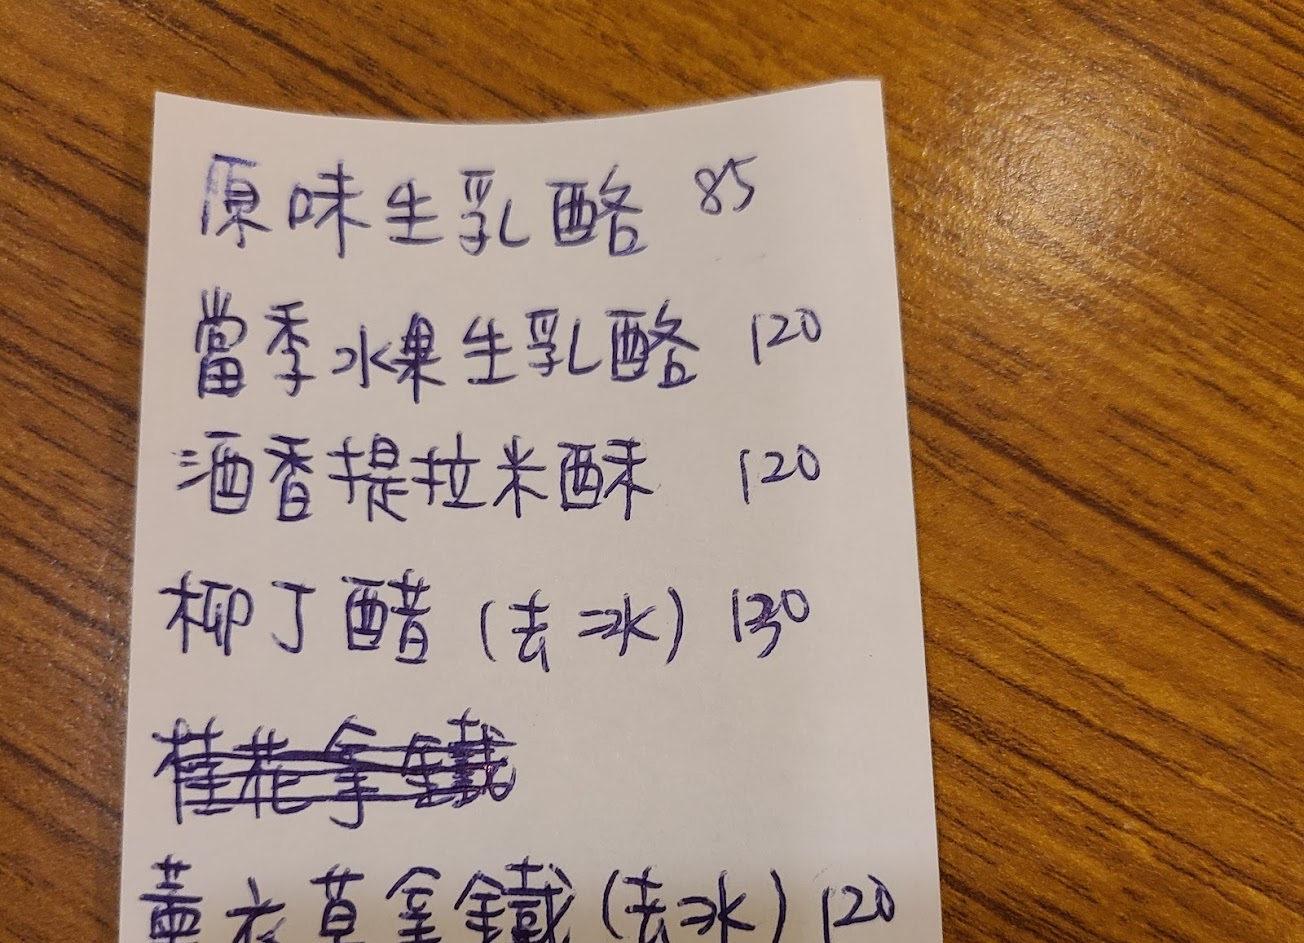 原味生乳酪 85
當季水果生乳酪 120
酒香提拉米酥 120
柳丁醋 (去冰) 130
桂花拿鐵
薰衣草拿鐵 (去冰) 120